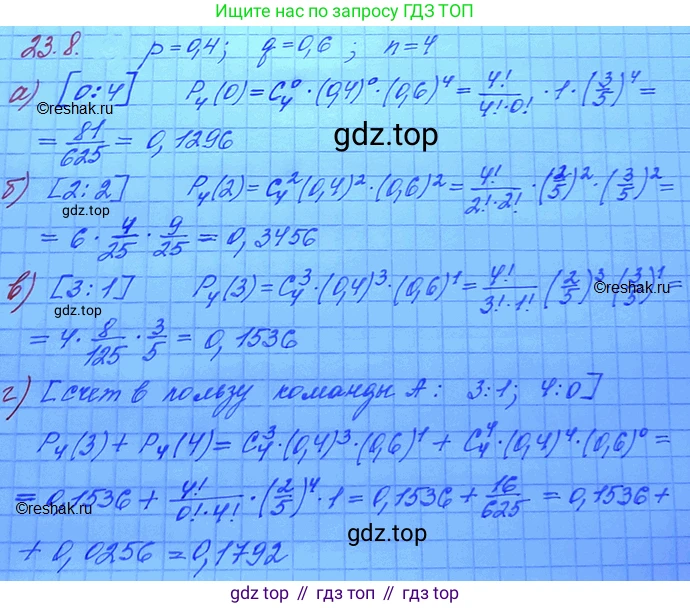 Ищите нас по запросу ГДЗ ТОП
23.8. p = 0,4; q = 0,6; n = 4
а) [0:4] P₄(0) = C₄⁰·(0,4)⁰·(0,6)⁴ = 4!/(4!·0!)·1·(3/5)⁴ =
©reshak.ru
= 81/625 = 0,1296
gdz.top
б) [2:2] P₄(2) = C₄²(0,4)²·(0,6)² = 4!/(2!·2!)·(2/5)²·(3/5)² =
gdz.top
= 6·4/25·9/25 = 0,3456
в) [3:1] P₄(3) = C₄³·(0,4)³·(0,6)¹ = 4!/(3!·1!)·(2/5)³·(3/5)¹ =
©reshak.ru
= 4·8/125·3/5 = 0,1536
г) [счет в пользу команды А: 3:1; 4:0]
P₄(3) + P₄(4) = C₄³·(0,4)³·(0,6)¹ + C₄⁴·(0,4)⁴·(0,6)⁰ =
= 0,1536 + 4!/(0!·4!)·(2/5)⁴·1 = 0,1536 + 16/625 = 0,1536 +
©reshak.ru
+ 0,0256 = 0,1792
gdz.top
gdz.top // gdz.top // gdz.top